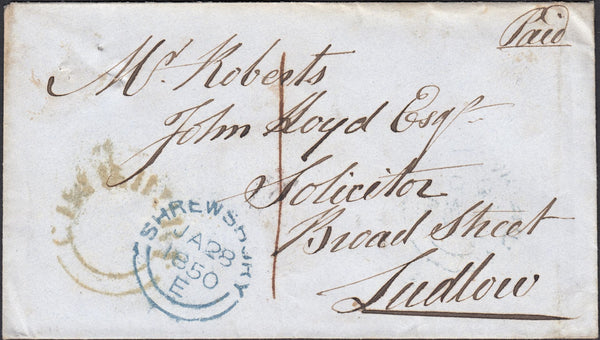 Paid
Mr. Roberts
John Lloyd Esqr
Solicitor
Broad Street
Ludlow
SHREWSBURY
JA 28
1850
E